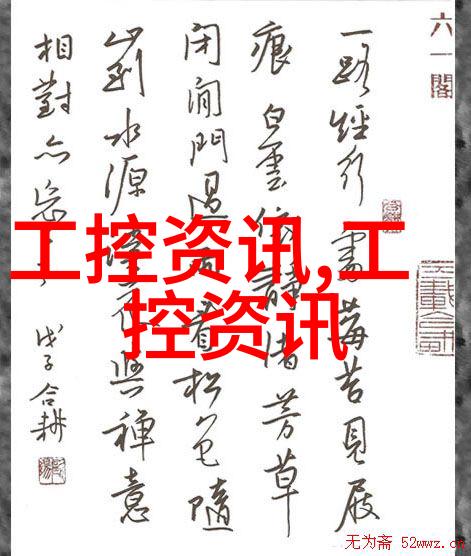 六一閣
一路經行處莓苔見屐
痕白雲依靜渚芳草
閉閒門過雨看松色隨
山到水源溪花與禪意
相對亦忘言
戊子合耕
工控资讯,工
控资讯
无为斋 52wwz.c